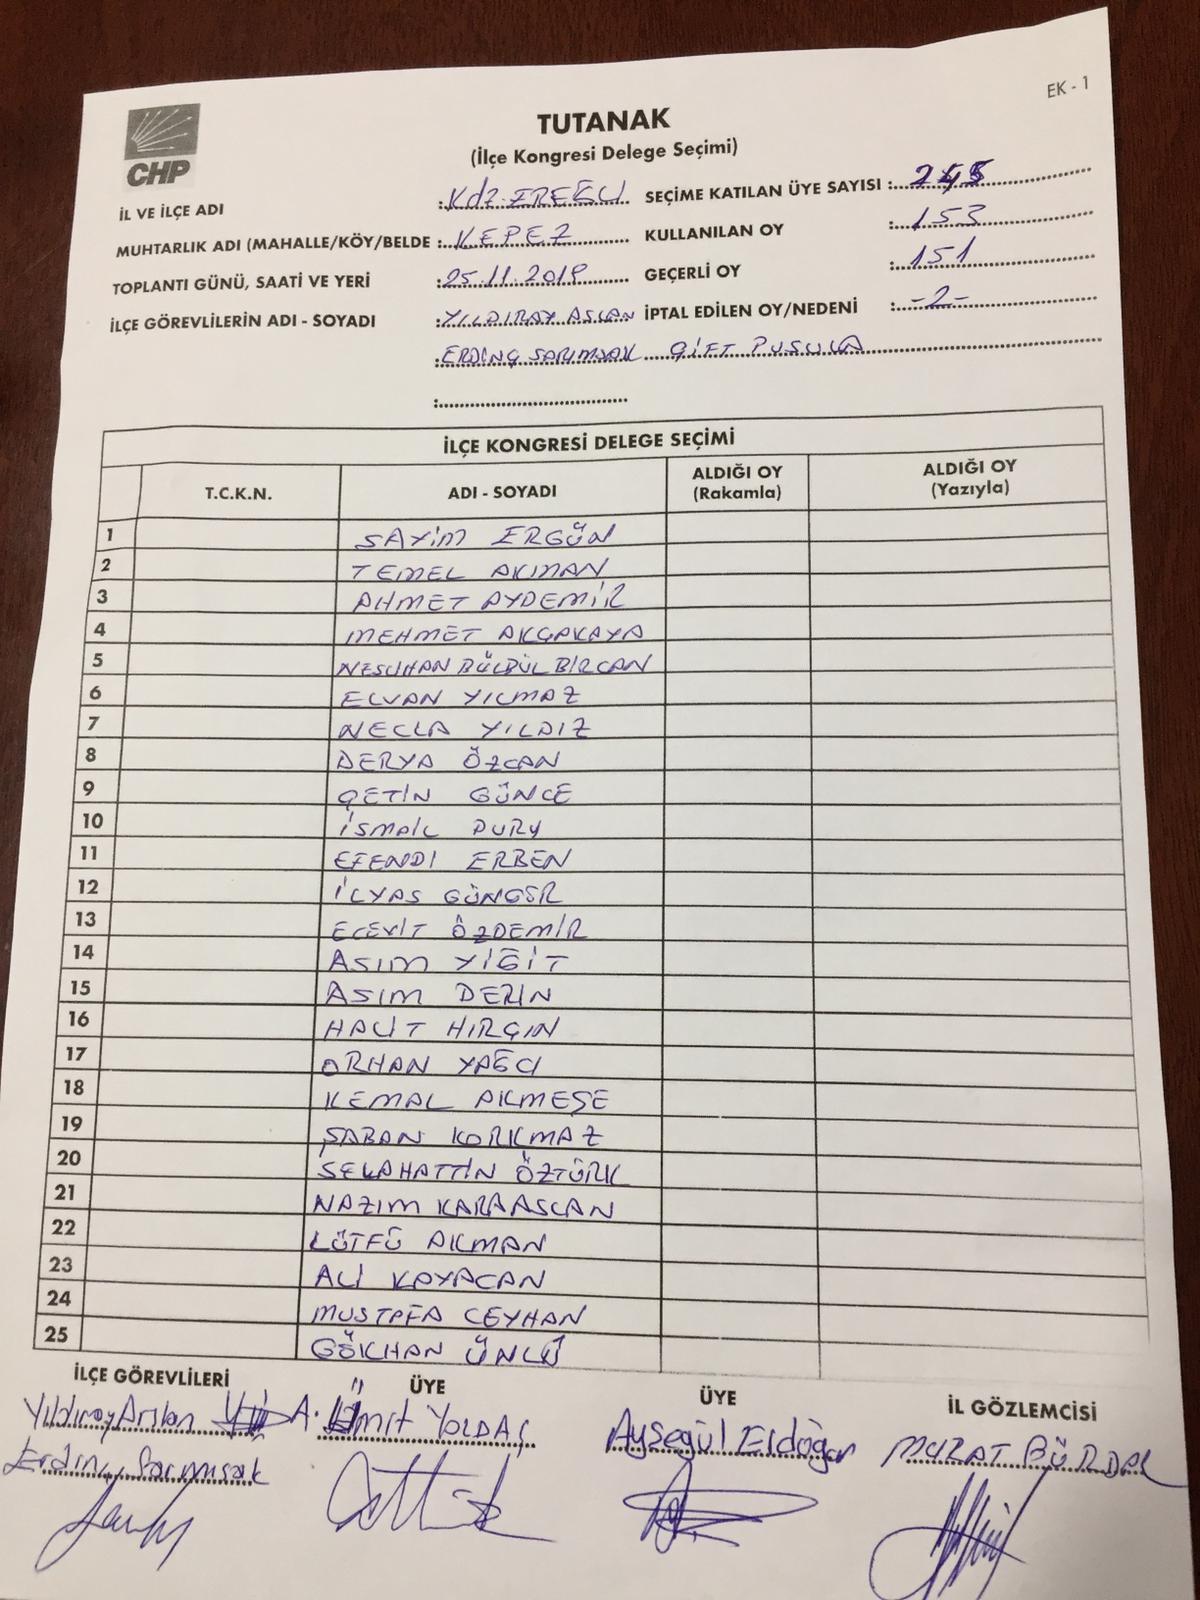 EK - 1
CHP
TUTANAK
(İlçe Kongresi Delege Seçimi)
İL VE İLÇE ADI : Kdz. EREĞLİ SEÇİME KATILAN ÜYE SAYISI :
MUHTARLIK ADI (MAHALLE/KÖY/BELDE : KEPEZ KULLANILAN OY : 153
TOPLANTI GÜNÜ, SAATİ VE YERİ : 25.11.2019 GEÇERLİ OY : 151
İLÇE GÖREVLİLERİN ADI - SOYADI : YILDIRAY ASLAN İPTAL EDİLEN OY/NEDENİ : -2-
: ERDİNÇ SARIMSAK ÇİFT PUSULA
:
İLÇE KONGRESİ DELEGE SEÇİMİ
T.C.K.N. ADI - SOYADI ALDIĞI OY (Rakamla) ALDIĞI OY (Yazıyla)
1 SAYİM ERGÜN
2 TEMEL AKMAN
3 AHMET AYDEMİR
4 MEHMET AKÇAKAYA
5 NESLİHAN BÜLBÜL BİRCAN
6 ELVAN YILMAZ
7 NECLA YILDIZ
8 DERYA ÖZCAN
9 ÇETİN GÜNCE
10 İSMAİL
11 EFENDİ ERBEN
12 İLYAS GÜNGÖR
13 ECEVİT ÖZDEMİR
14 ASIM YİĞİT
15 ASIM DERİN
16 HALİT HIRÇIN
17 ORHAN YAĞCI
18 KEMAL AKMEŞE
19 ŞABAN KORKMAZ
20 SELAHATTİN ÖZTÜRK
21 NAZIM KARAASLAN
22 LÜTFÜ AKMAN
23 ALİ KAYACAN
24 MUSTAFA CEYHAN
25 GÖKHAN ÜNLÜ
İLÇE GÖREVLİLERİ ÜYE ÜYE İL GÖZLEMCİSİ
Yıldıray Arslan A. Ümit YOLDAŞ Ayşegül Erdoğan MURAT BÜRDAL
Erdinç Sarımsak